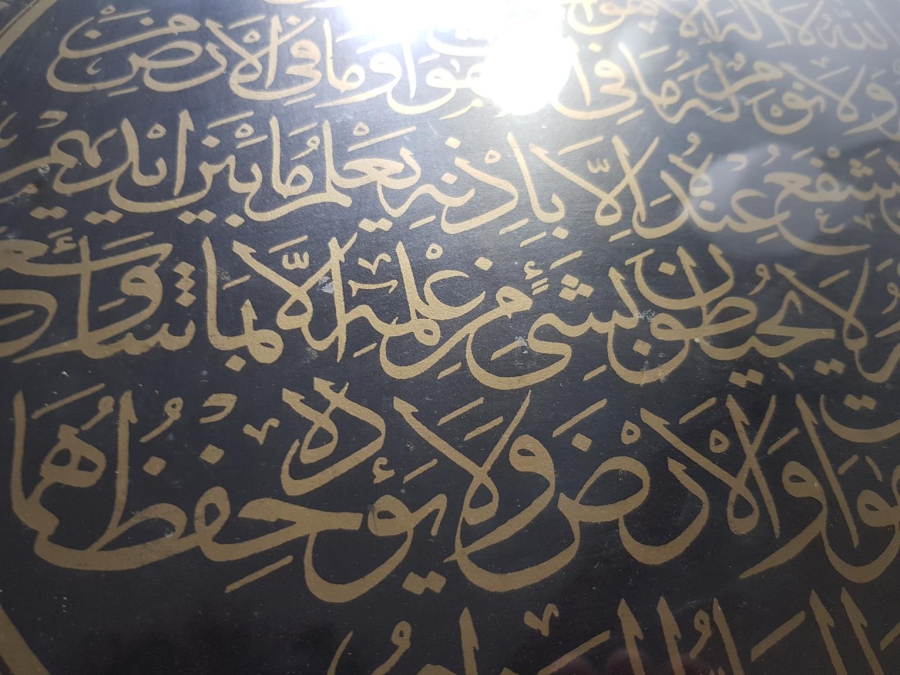 الله لا اله الا هو
ولا نوم له ما في السموات وما في الارض من
يشفع عنده الا باذنه يعلم ما بين ايديهم
ولا يحيطون بشئ من علمه الا بما شاء وسع
والارض ولا يؤده حفظهما